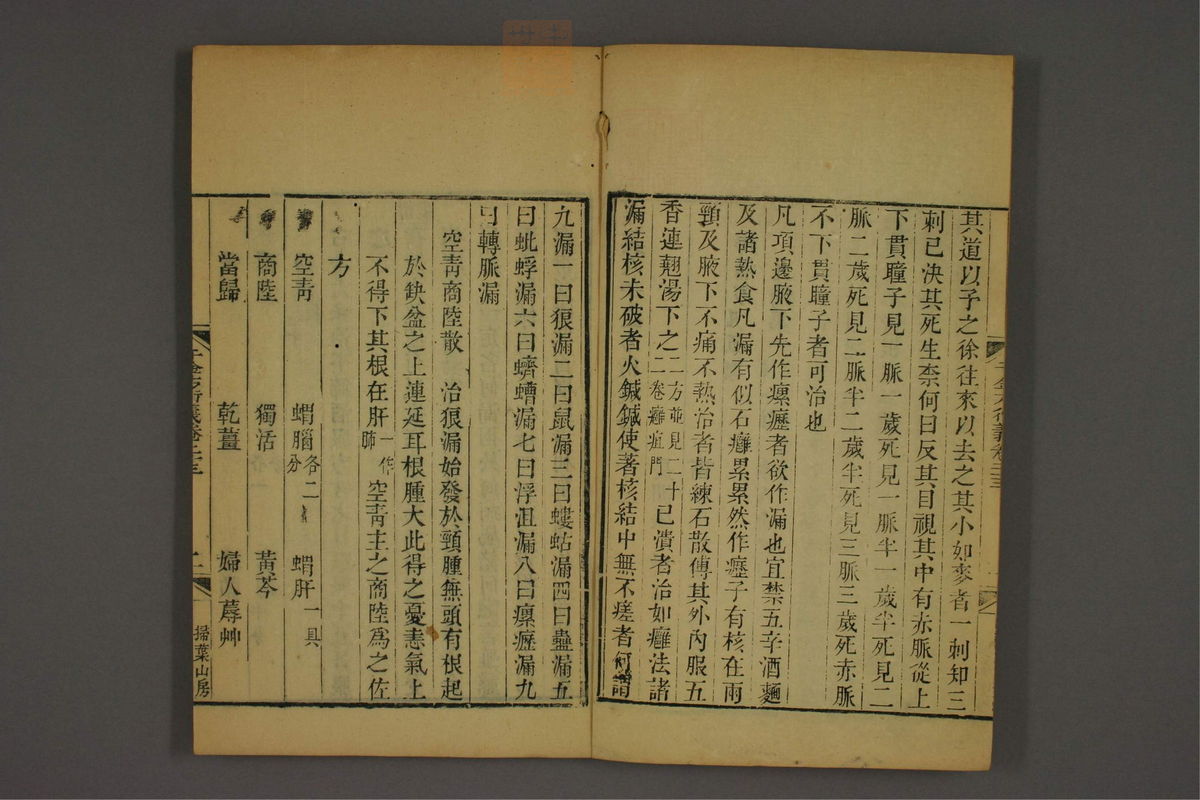 其道以予之徐往來以去之其小如麥者一刺知三
刺已決其死生柰何曰反其目視其中有赤脈從上
下貫瞳子見一脈一歲死見一脈半一歲半死見二
脈二歲死見二脈半二歲半死見三脈三歲死赤脈
不下貫瞳子者可治也
凡項邊腋下先作瘰癧者欲作漏也宜禁五辛酒麵
及諸熱食凡漏有似石癰累累然作癧子有核在兩
頸及腋下不痛不熱治者皆練石散傅其外內服五
香連翹湯下之二方並見二十二卷癰疽門已潰者治如癰法諸
漏結核未破者火鍼鍼使著核結中無不瘥者何謂
九漏一曰狼漏二曰鼠漏三曰螻蛄漏四曰蠱漏五
曰蚍蜉漏六曰蠐螬漏七曰浮沮漏八曰瘰癧漏九
曰轉脈漏
空青商陸散 治狼漏始發於頸腫無頭有根起
於缺盆之上連延耳根腫大此得之憂恚氣上
不得下其根在肝一作肺空青主之商陸爲之佐
方
空青 蝟腦各二分 蝟肝一具
商陸 獨活 黃芩
當歸 乾薑 婦人蓐艸
二
掃葉山房